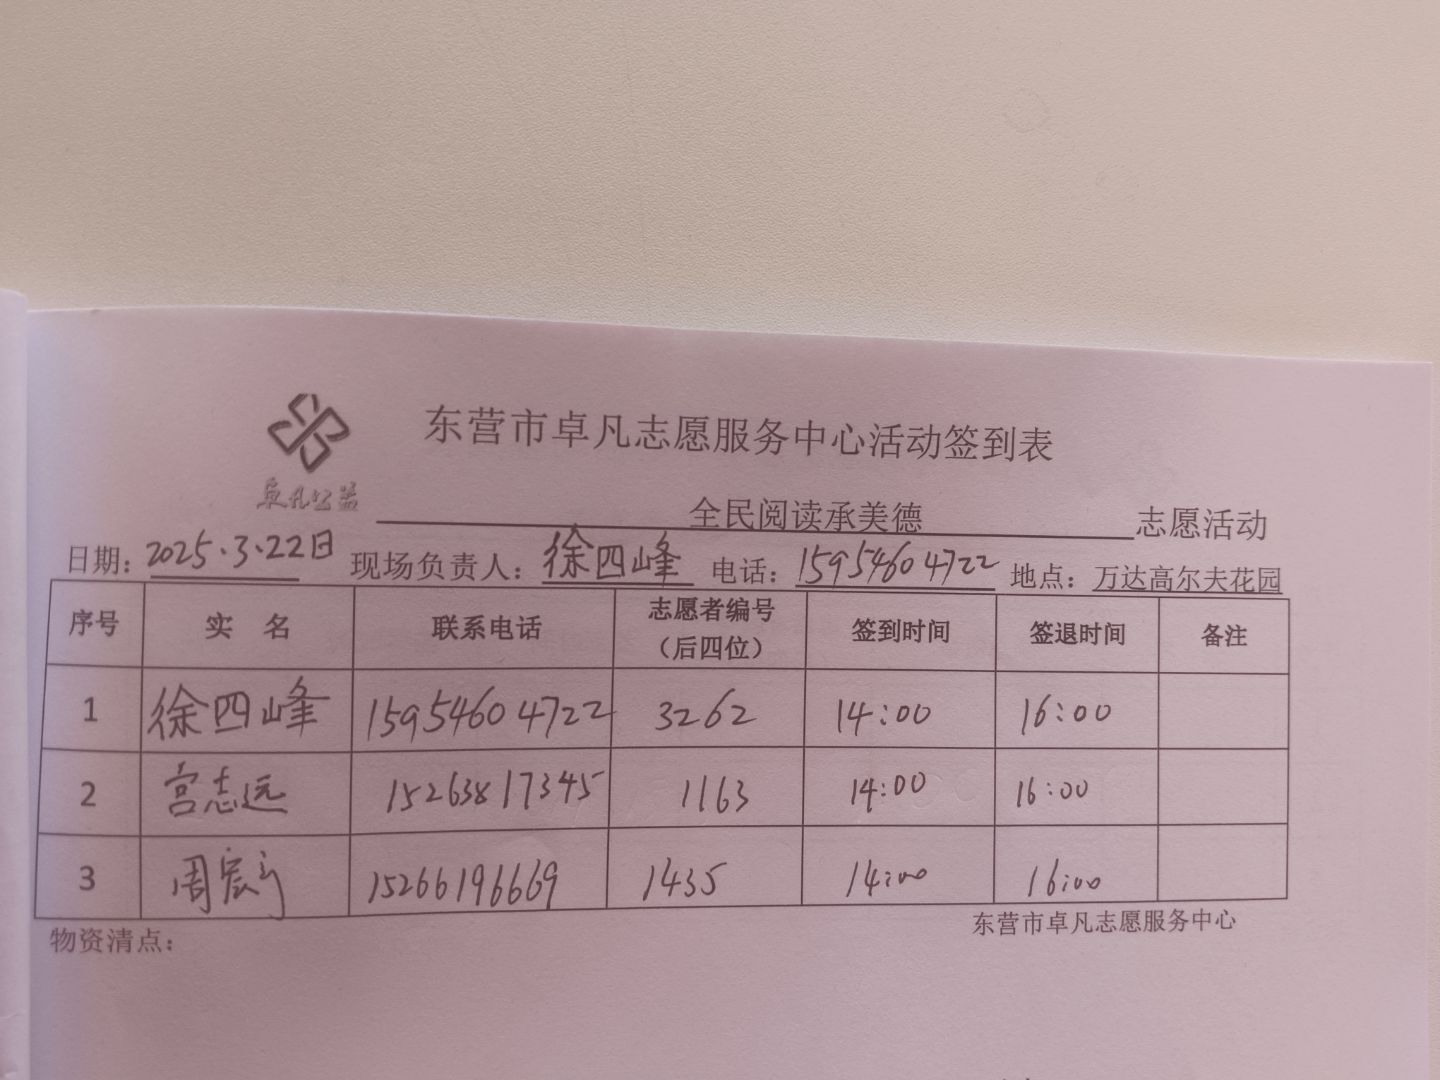 东营市卓凡志愿服务中心活动签到表
卓凡公益
全民阅读承美德 志愿活动
日期：2025.3.22日 现场负责人：徐四峰 电话：15954604722 地点：万达高尔夫花园
序号 实 名 联系电话 志愿者编号（后四位） 签到时间 签退时间 备注
1 徐四峰 15954604722 3262 14:00 16:00
2 宫志远 15263817345 1163 14:00 16:00
3 周宏 15266196669 1435 14:00 16:00
物资清点： 东营市卓凡志愿服务中心